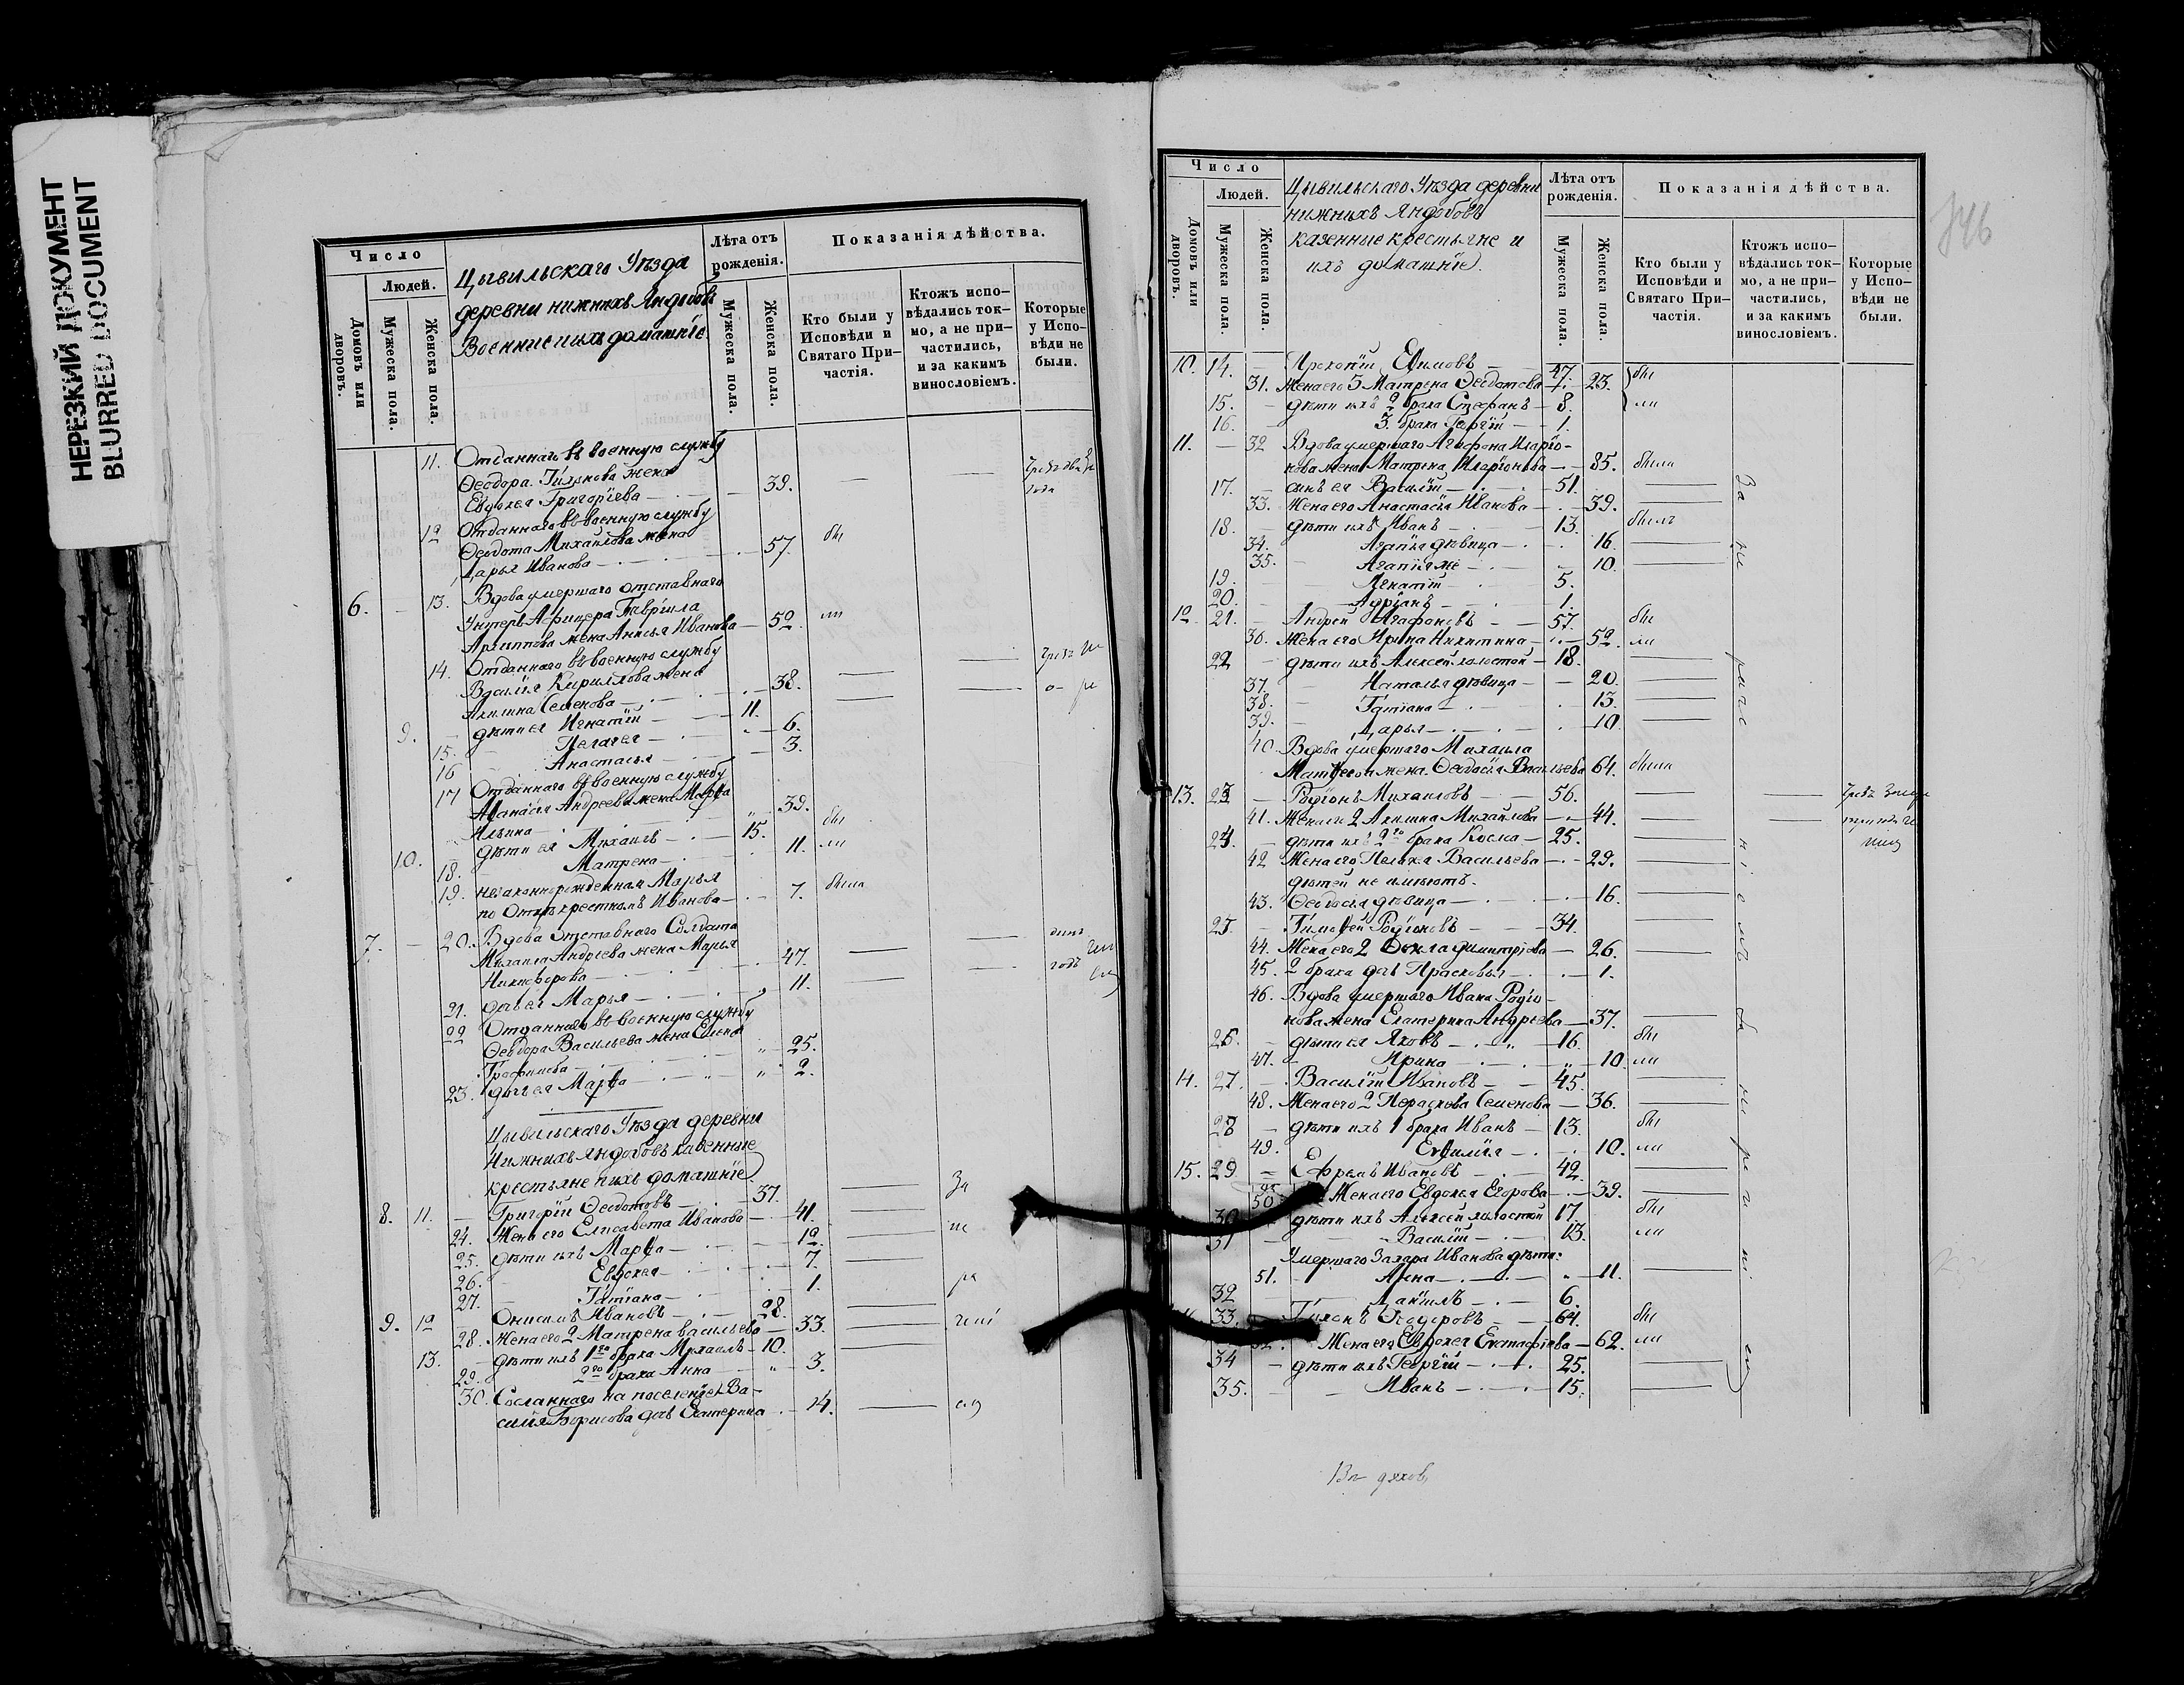 НЕРЕЗКИЙ ДОКУМЕНТ
BLURRED DOCUMENT
Число
Людей.
Домовъ или дворовъ.
Мужеска пола.
Женска пола.
Цывильскаго Уѣзда
деревни нижнихъ Яндобъ
Военные и ихъ домашніе
Лѣта отъ рожденія.
Мужеска пола.
Женска пола.
Показанія дѣйства.
Кто были у Исповѣди и Святаго При-частія.
Ктожъ испо-вѣдались ток-мо, а не при-частились, и за какимъ винословіемъ.
Которые у Испо-вѣди не были.
11. Отданнаго въ военную службу
Ѳеодора Тихонова жена
Евдокея Григоріева — 39. —
12 Отданнаго въ военную службу
Ѳеодота Михайлова жена
Дарья Иванова — 57. бы
6. — 13. Вдова умершаго отставнаго
Унтеръ Афицера Гавріила
Архиппова жена Анисья Иванова — 52. ли
14. Отданнаго въ военную службу
Василія Кириллова жена
Акилина Семенова — 38. —
9. — дѣти ея Игнатій — 11.
15. Пелагея — 6.
16 Анастасья — 3.
17 Отданнаго въ военную службу
Аѳанасія Андреева жена Марѳа
Ильина — 39. бы
10. — дѣти ея Михаилъ — 15. ли
18. Матрена — 11.
19. незаконнорожденная Марья
по Отцѣ крестномъ Иванова — 7. была
7. — 20. Вдова отставнаго Солдата
Михаила Андреева жена Марья
Никифорова — 47. — годъ
21. дочь ея Марья — 11. —
22 Отданнаго въ военную службу
Ѳеодора Васильева жена Елена
Трофимова — 25.
23. дочь ея Марѳа — 2.
Цывильскаго Уѣзда деревни
Нижнихъ Яндобъ казенные
крестьяне и ихъ домашніе
8. 11. — Григорій Ѳеодотовъ — 37. — За
24. Жена его Елисавета Иванова — 41. — не
25. дѣти ихъ Марѳа — 12. —
26. Евдокея — 7. —
27. Татіана — 1. ра
9. 12 — Онисимъ Ивановъ — 28. —
28. Жена его 2 Матрена Васильева — 33. — чені
13. — дѣти ихъ 1го брака Михаилъ — 10. —
29. 2го брака Анна — 3.
30. Сосланнаго на поселеніе Ва-
силія Борисова дочь Екатерина — 14. — емъ
Число
Людей.
Домовъ или дворовъ.
Мужеска пола.
Женска пола.
Цывильскаго Уѣзда деревни
нижнихъ Яндобъ
казенные крестьяне и
ихъ домашніе.
Лѣта отъ рожденія.
Мужеска пола.
Женска пола.
Показанія дѣйства.
Кто были у Исповѣди и Святаго При-частія.
Ктожъ испо-вѣдались ток-мо, а не при-частились, и за какимъ винословіемъ.
Которые у Испо-вѣди не были.
346
10. 14. — Прокопій Еѳимовъ — 47. бы
31. Жена его 3 Матрена Ѳеодотова — 23.
15. — дѣти ихъ 2 брака Стефанъ — 8. ли
16. — 3. брака Георгій — 1.
11. — 32 Вдова умершаго Агафона Иларіо-
нова жена Матрена Иларіонова — 85. была
17. — сынъ ея Василій — 51. —
33. Жена его Анастасія Иванова — 39. —
18. — дѣти ихъ Иванъ — 13. былъ
34. Агапія дѣвица — 16. —
35. Агапія же — 10. —
19. — Игнатій — 5.
20. — Адріанъ — 1.
12 21. — Андрей Агафоновъ — 57. бы
30. Жена его Ирина Никитина — 52. ли
22 — дѣти ихъ Алексей холостой — 18. —
37. Наталья дѣвица — 20. —
38. Татіана — 13. —
39. Дарья — 10. —
40. Вдова умершаго Михаила
Матѳеева жена Ѳеодосія Васильева 64. была
13. 23. — Родіонъ Михаиловъ — 56. —
41. Жена его 2 Акилина Михайлова — 44. —
24. — дѣти ихъ 2го брака Косма — 25. —
42 Жена его Пелагея Васильева — 29. —
дѣтей не имѣютъ.
43. Ѳеодосія дѣвица — 16. —
25. — Тимоѳей Родіоновъ — 34. —
44. Жена его 2 Ѳекла Димитріева — 26. —
45. 2 брака дочь Прасковья — 1.
46. Вдова умершаго Ивана Родіо-
нова жена Екатерина Андреева — 37. —
26. — дѣти ея Яковъ — 16. бы
47. Ирина — 10. ли
14. 27. — Василій Ивановъ — 45. —
48. Жена его 2 Параскова Семенова — 36. —
28 — дѣти ихъ 1 брака Иванъ — 13. бы
49. Евѳимія — 10. ли
15. 29 — Ефремъ Ивановъ — 42. —
50 Жена его Евдокея Егорова — 39. —
30 — дѣти ихъ Алексей холостой 17. бы
31 — Василій — 13. ли
Умершаго Захара Иванова дѣти:
51. Анна — 11. —
32 — Даніилъ — 6.
33. — Тихонъ Ѳеодоровъ — 64. бы
52. Жена его Евдокея Евстафіева — 62. ли
34 — дѣти ихъ Георгій — 25. —
35. — Иванъ — 15. —